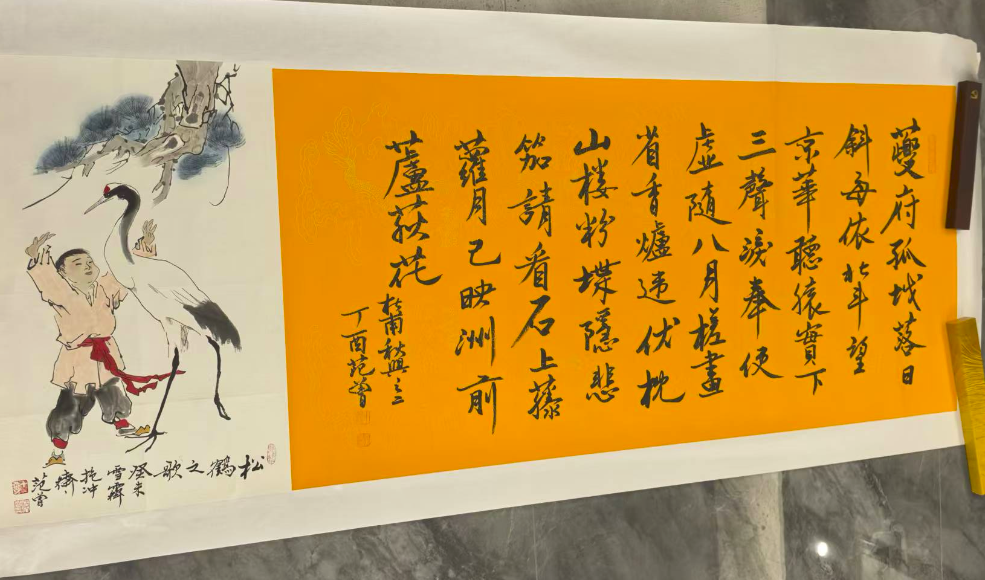 夔府孤城落日
斜每依北斗望
京華聽猿實下
三聲淚奉使
虛隨八月槎畫
省香爐違伏枕
山楼粉堞隱悲
笳請看石上藤
蘿月已映洲前
蘆荻花
杜甫秋興之二
丁酉范曾
松鶴之歌
癸未
雪霽
抱冲
齋
范曾